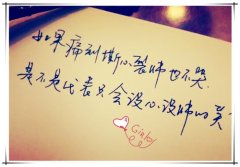 如果痛到撕心裂肺也不哭
是不是代表只会没心没肺的笑
Ginkoy